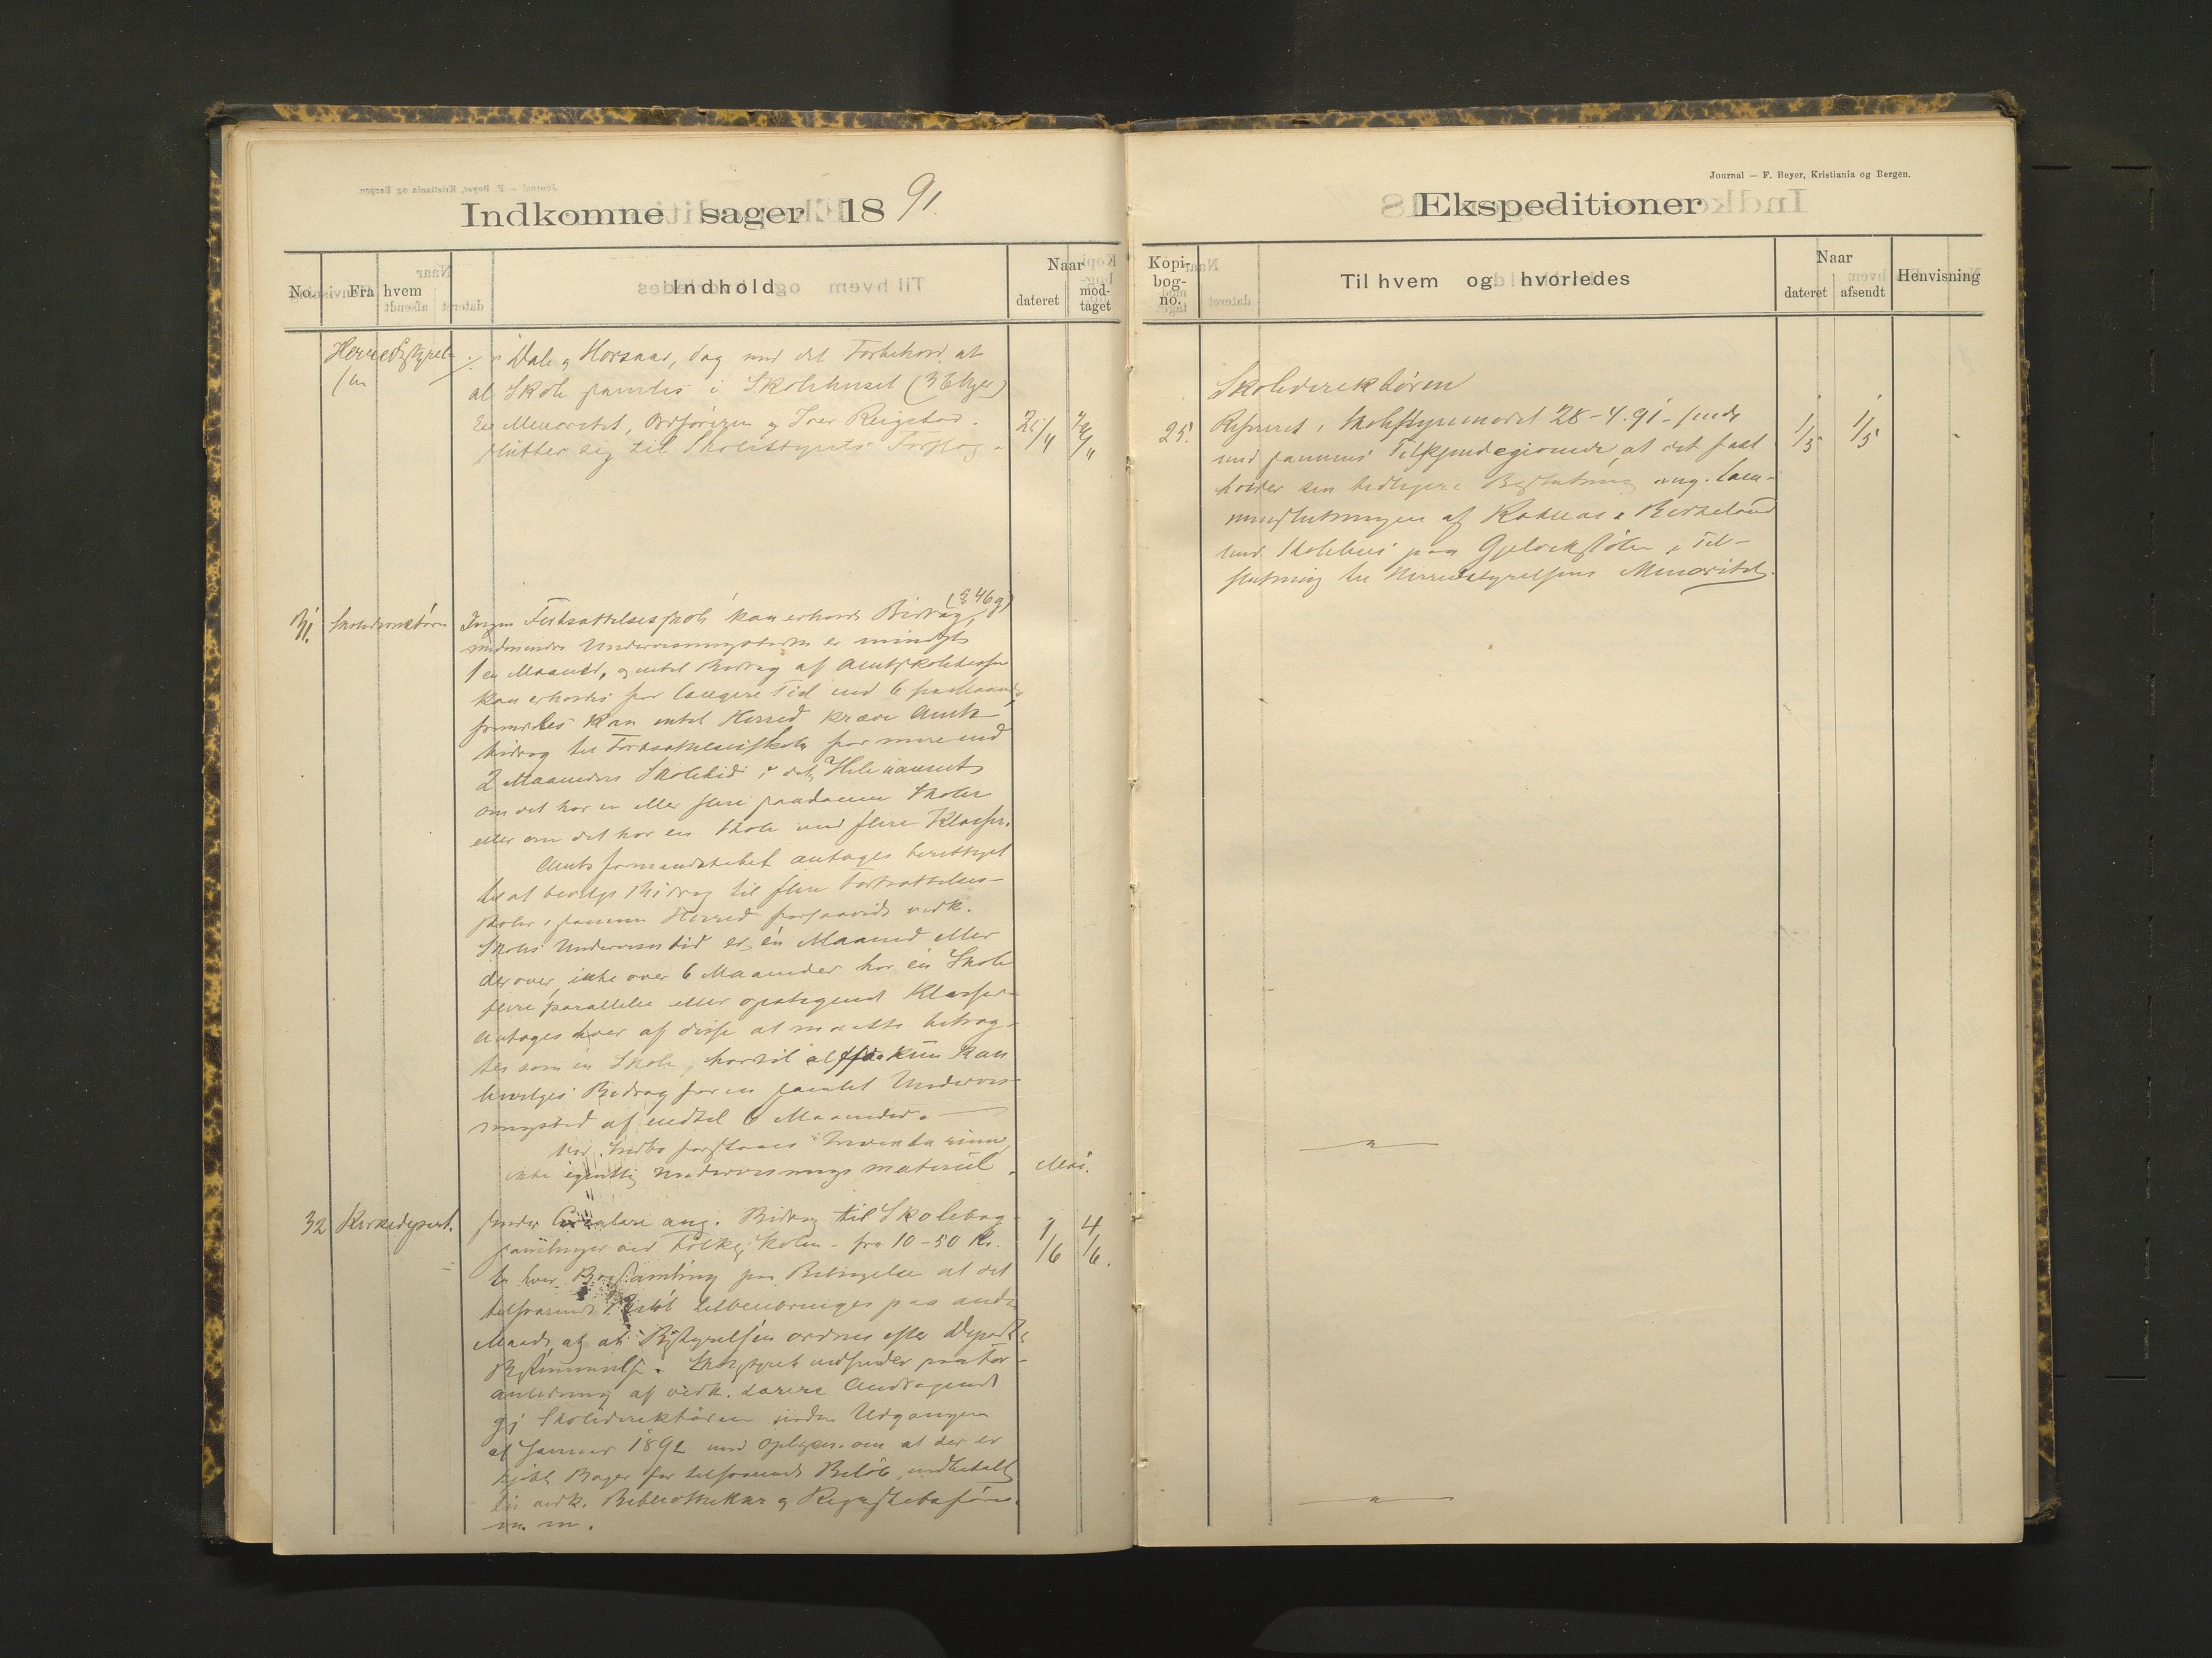 Indkomne sager 1891.
No.
Fra hvem
Indhold
Naar
dateret
mod-
taget
Herredsstyrel-
sen
Dale og Horsaas, dog med det Forbehold at
al Skole samles i Skolehuset (36 Uger)
En Minoritet, Ordføreren og Iver Reigstad
slutter sig til Skolestyrets Forslag.
31. Skoledirektøren
Ingen Fortsættelsesskole kan erholde Bidrag (§ 46 g)
medmindre Undervisningstiden er mindst
1 en Maaned, og intet Bidrag af Amtsskolekassen
kan erholdes for længere Tid end 6 Maaneder,
fremdeles kan intet Herred kræve Amts-
bidrag til Fortsættelsesskole for mere end
2 Maaneders Skoletid i det Hele uanseet
om det har en eller flere saadanne Skoler
eller om det har en Skole med flere Klasser.
Amtsformandskabet antages berettiget
til at bevilge Bidrag til flere Fortsættelses-
skoler i samme Herred forsaavidt vedk.
Skoles Undervisn.tid er én Maaned eller
derover, ikke over 6 Maaneder har én Skole
flere parallele eller opstigende Klasser
antages hver af disse at maatte betrag-
tes som en Skole, hvortil altsaa kun kan
bevilges Bidrag for en samlet Undervis-
ningstid af indtil 6 Maaneder.
Ved Indbo forstaaes Inventarium,
ikke egentlig Undervisningsmateriel.
Mai.
32 Kirkedepart.
sender Cirkulære ang. Bidrag til Skolebog-
samlinger ved Folkeskolen - fra 10-50 Kr.
til hver Bogsamling paa Betingelse at det
tilsvarende Beløb tilveiebringes paa anden
Maade, og at Bestyrelsen ordnes efter Depart.s
Bestemmelse. Skolestyret indsender paa For-
anledning af vedk. Lærere Andragende
gj Skoledirektøren inden Udgangen
af Januar 1892 med Oplysn. om at der er
kjøbt Bøger for tilsvarende Beløb, indbetalt
til vedk. Bibliothekar og Regnskabsfører
m. m.
1/6 4/6.
Journal — F. Beyer, Kristiania og Bergen.
Ekspeditioner
Kopi-
bog-
no.
Til hvem og hvorledes
Naar
dateret
afsendt
Henvisning
Skoledirektøren
25. Refereret i Skolestyremødet 28-4.91 - sendt 1/5 1/5
med sammes Tilkjendegivende, at det fast
holder sin tidligere Beslutning ang. Sam-
mensslutningen af Rødlaas & Birkeland
med Skolehus paa Gjelvikstølen i Til-
slutning til Herredsstyrelsens Minoritet.